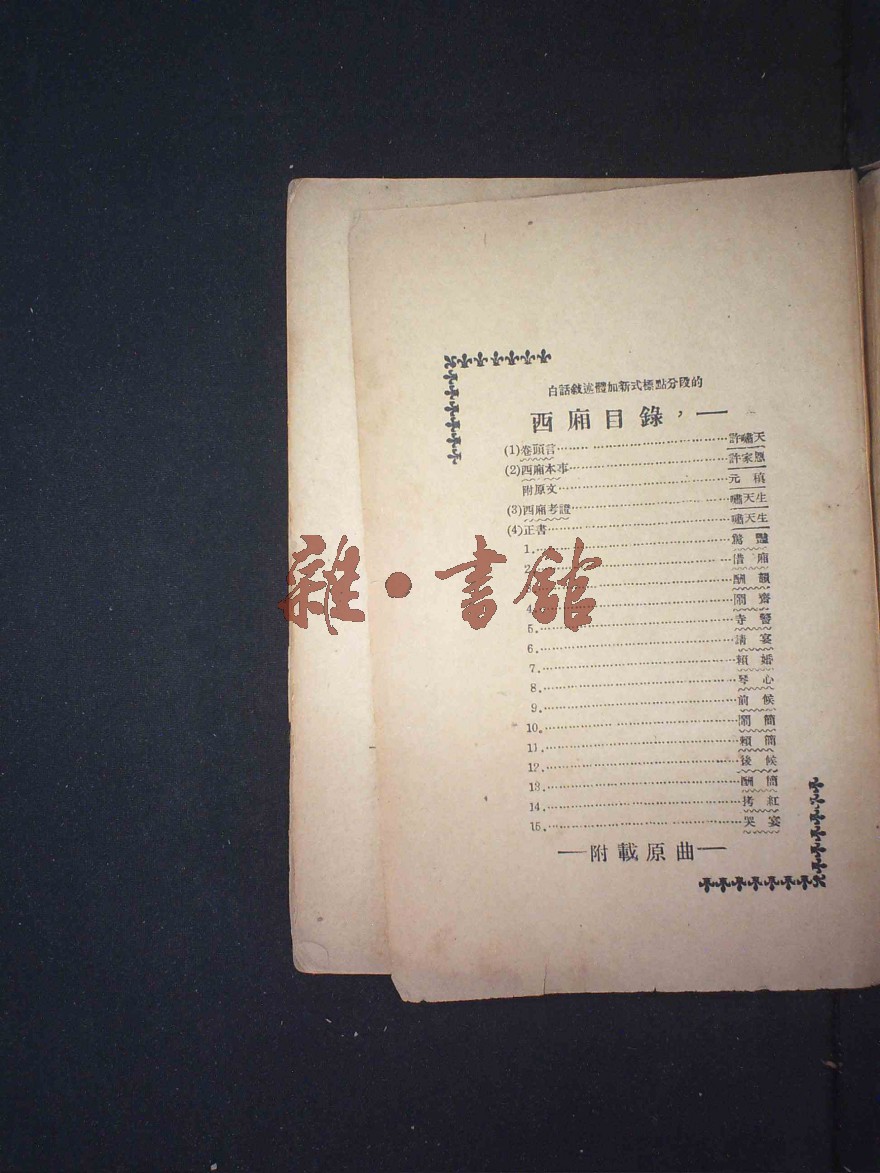 白話敘述體加新式標點分段的
西廂目錄，一
(1)卷頭言……許嘯天
(2)西廂本事……許家恩
附原文……元稹
(3)西廂考證……嘯天生
(4)正書……嘯天生
1.……驚豔
2.……借廂
3.……酬韻
4.……鬧齋
5.……寺警
6.……請宴
7.……賴婚
8.……琴心
9.……前候
10.……鬧簡
11.……賴簡
12.……後候
13.……酬簡
14.……拷紅
15.……哭宴
—附載原曲—
雜·書館